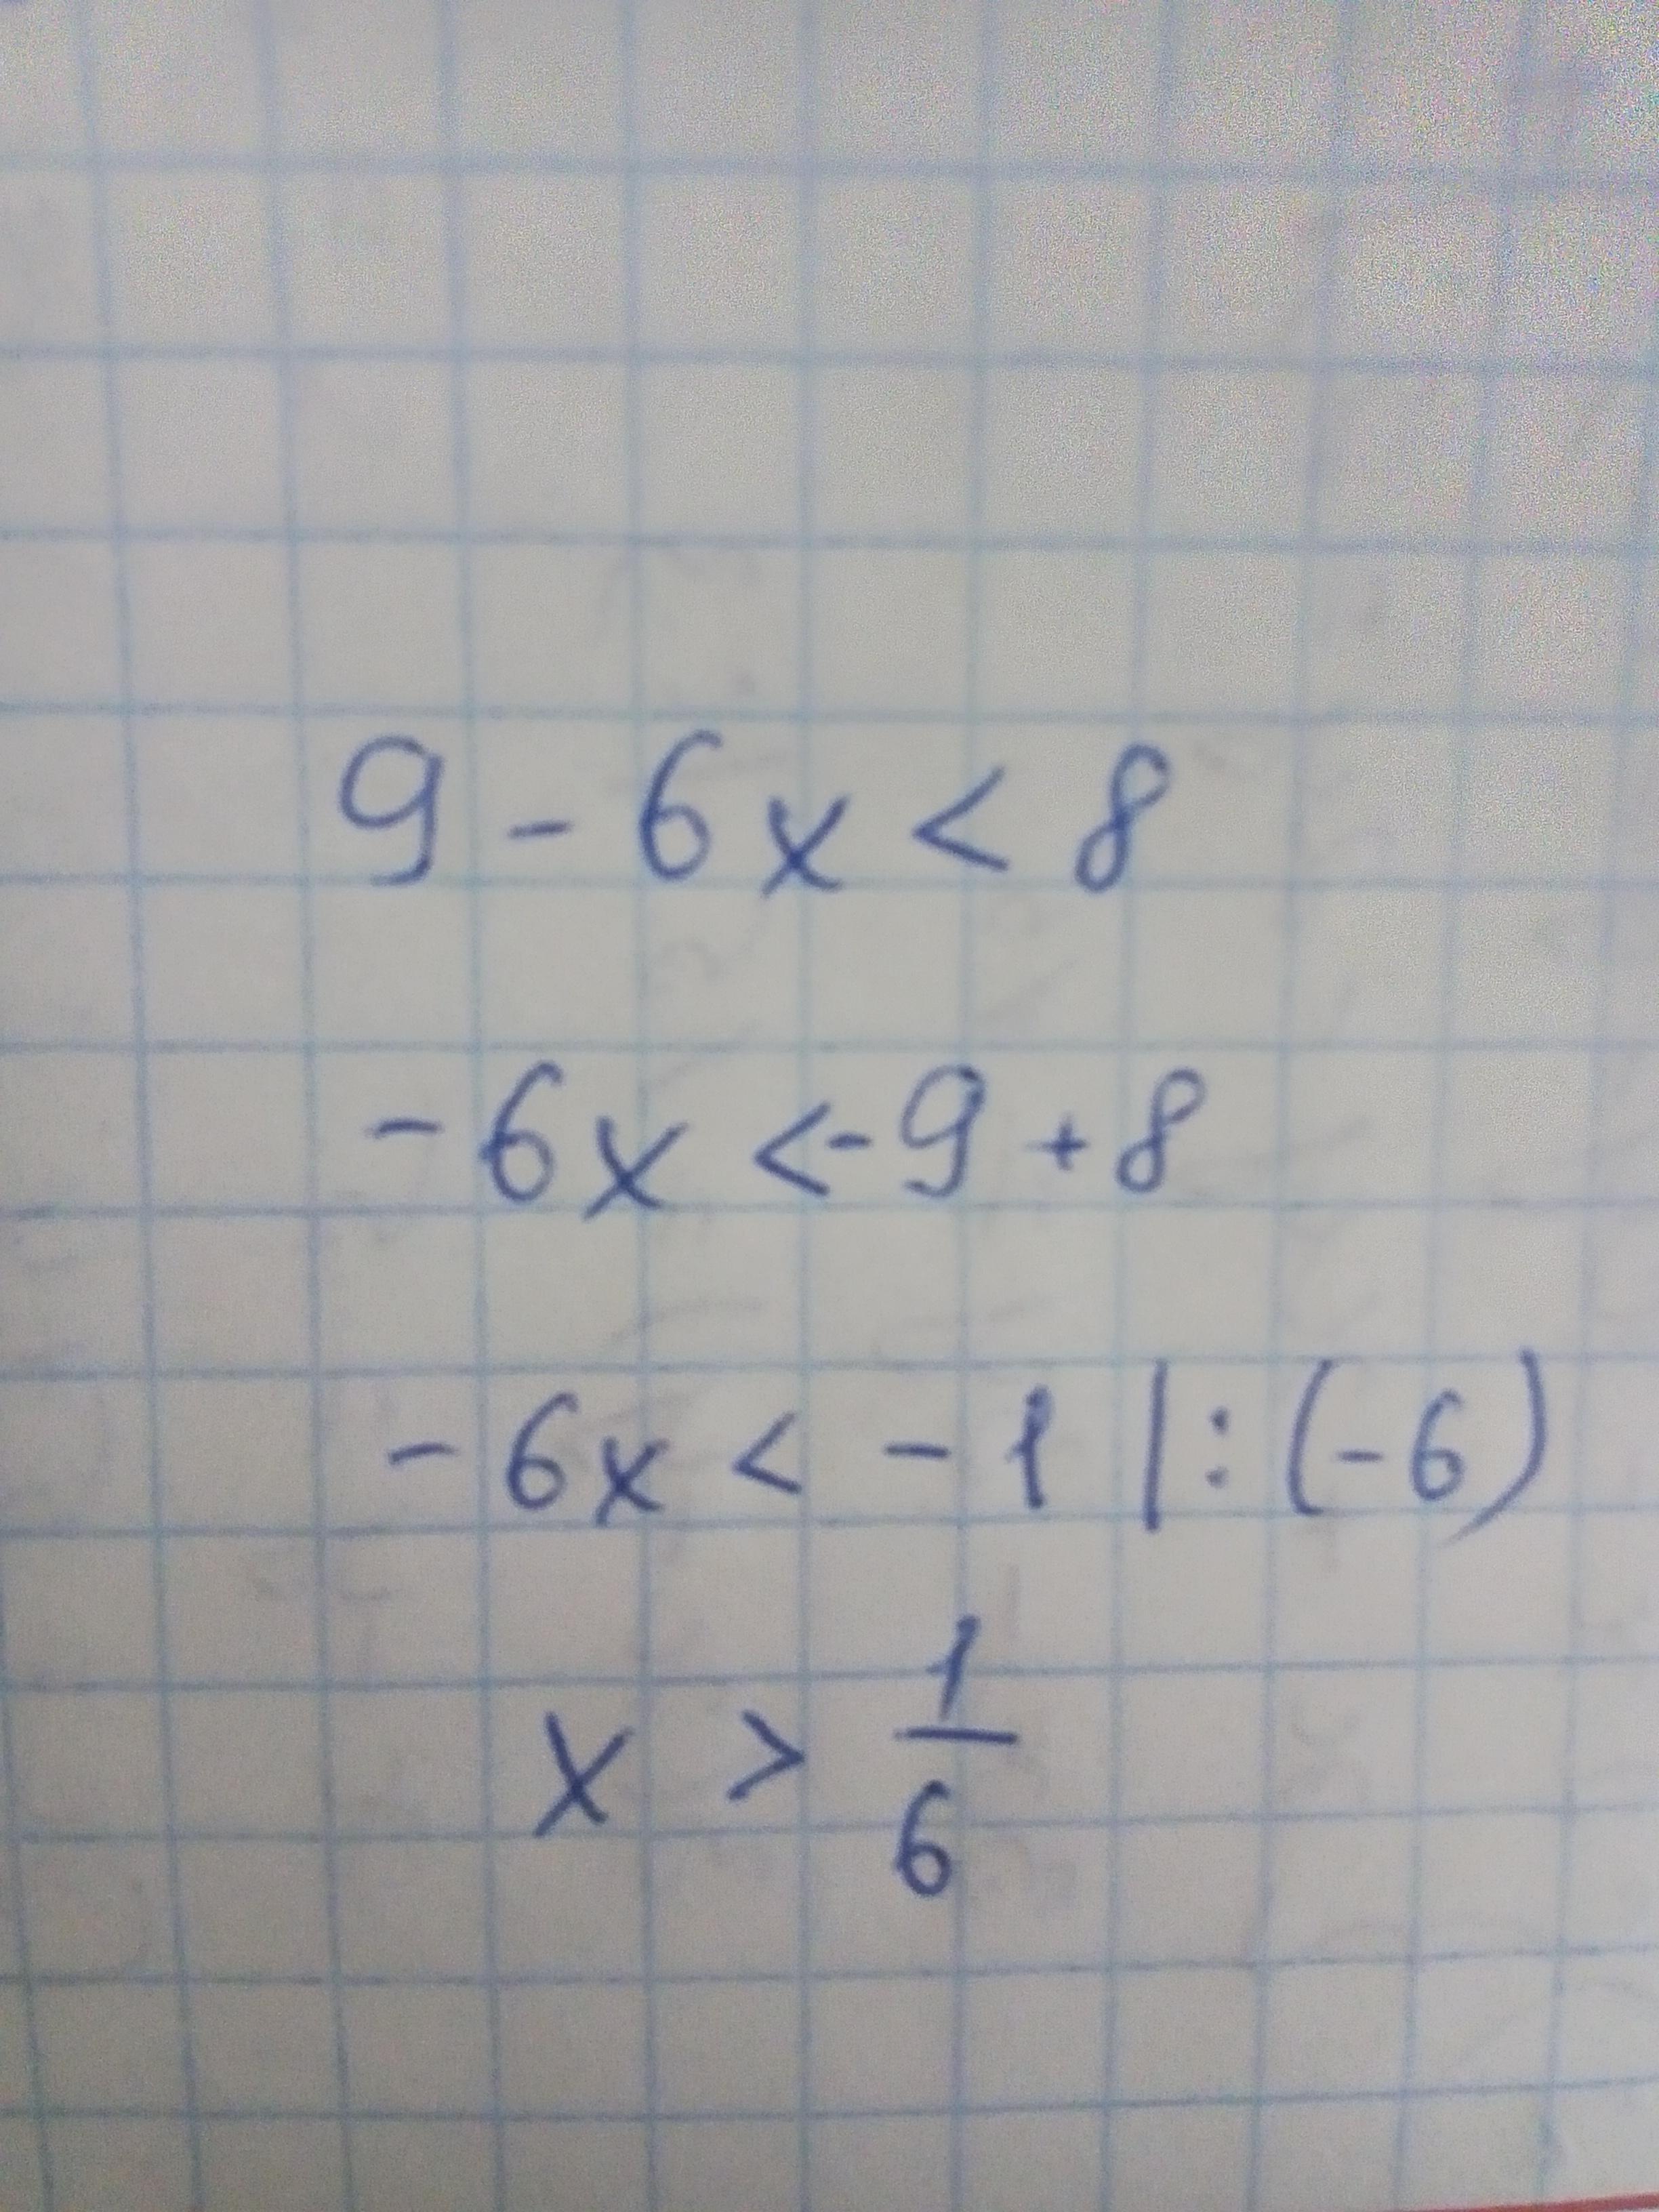 9 - 6x < 8
- 6x < - 9 + 8
- 6x < - 1 | : (-6)
x > 1/6